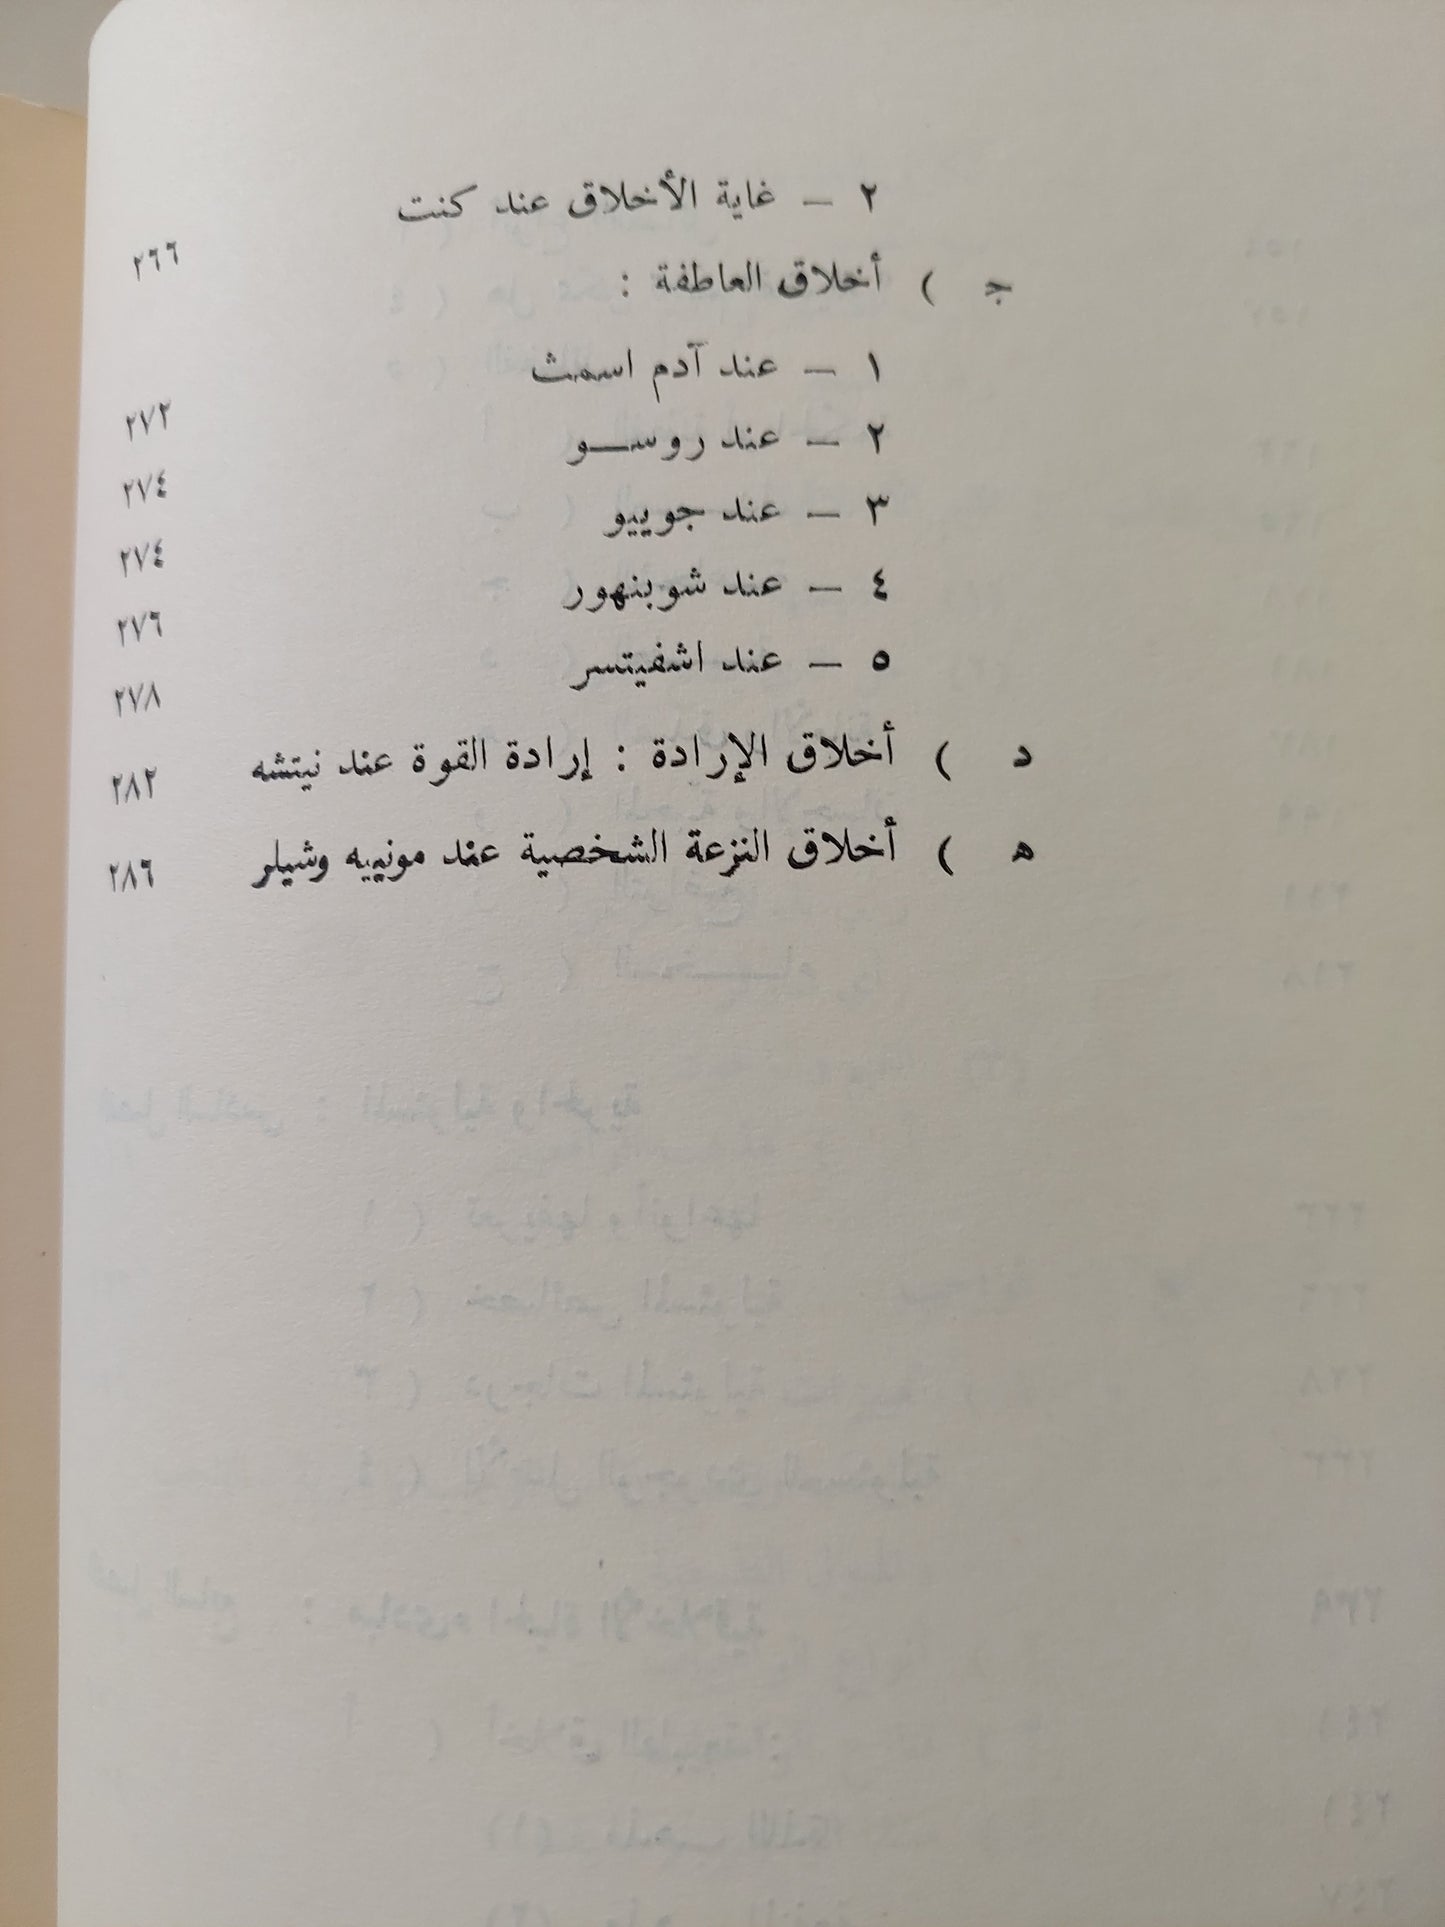 ٢ – غاية الأخلاق عند كنت ٢٦٦
ج ) أخلاق العاطفة :
١ – عند آدم اسمث ٢٧٢
٢ – عند روســو ٢٧٤
٣ – عند جوييو ٢٧٤
٤ – عند شوبنهور ٢٧٦
٥ – عند اشفيتسر ٢٧٨
د ) أخلاق الإرادة : إرادة القوة عند نيتشه ٢٨٢
ه ) أخلاق النزعة الشخصية عند مونييه وشيلر ٢٨٦